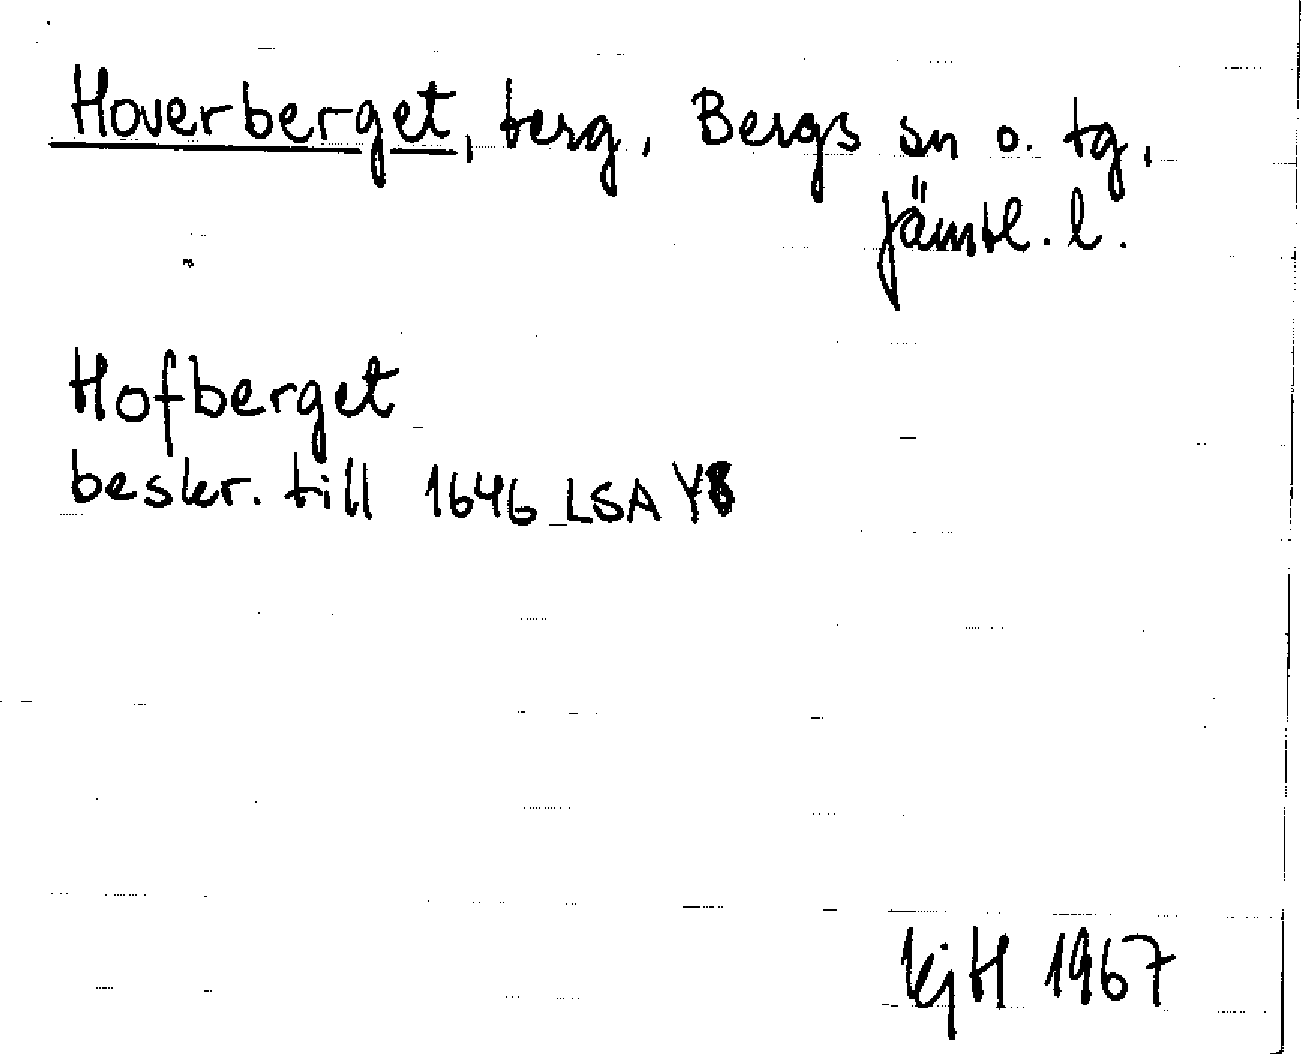 Hoverberget, berg, Bergs sn o. tg,
Jämtl. l.
Hofberget
beskr. till 1646 LSA Y8
KjH 1967